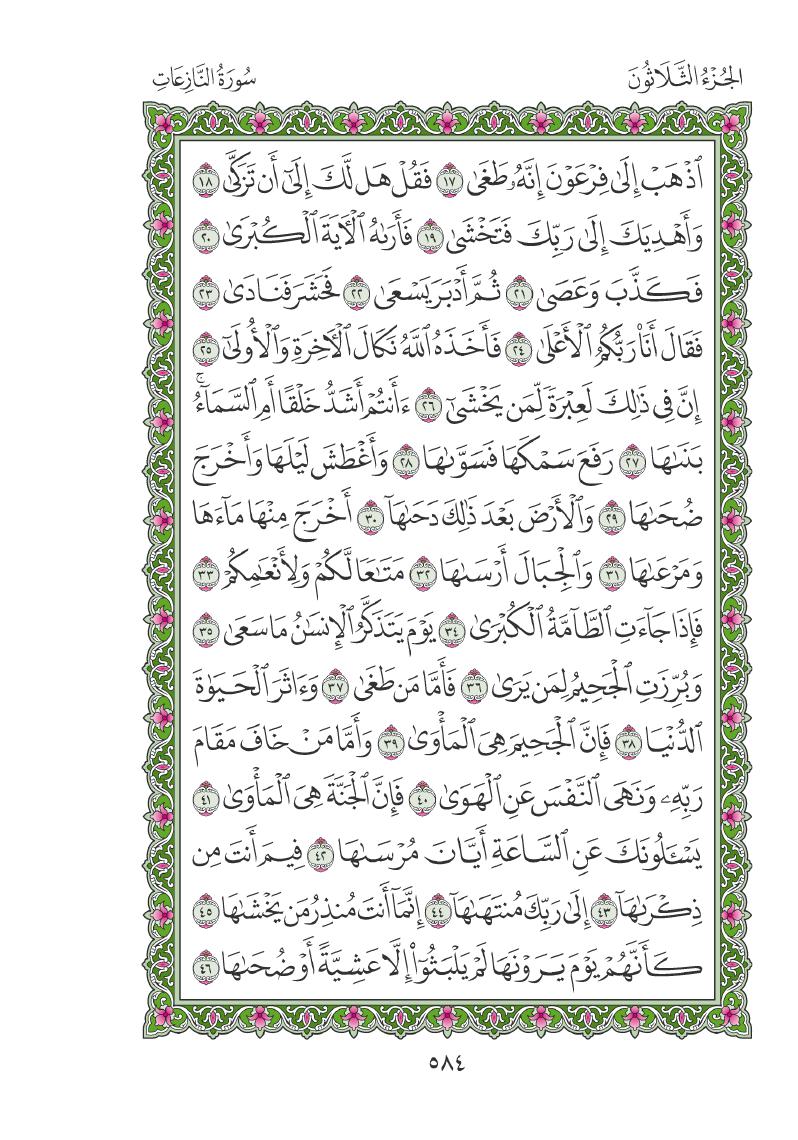 الجُزْءُ الثَّلَاثُونَ
سُورَةُ النَّازِعَاتِ
ٱذۡهَبۡ إِلَىٰ فِرۡعَوۡنَ إِنَّهُۥ طَغَىٰ ١٧ فَقُلۡ هَل لَّكَ إِلَىٰٓ أَن تَزَكَّىٰ ١٨
وَأَهۡدِيَكَ إِلَىٰ رَبِّكَ فَتَخۡشَىٰ ١٩ فَأَرَىٰهُ ٱلۡأٓيَةَ ٱلۡكُبۡرَىٰ ٢٠
فَكَذَّبَ وَعَصَىٰ ٢١ ثُمَّ أَدۡبَرَ يَسۡعَىٰ ٢٢ فَحَشَرَ فَنَادَىٰ ٢٣
فَقَالَ أَنَا۠ رَبُّكُمُ ٱلۡأَعۡلَىٰ ٢٤ فَأَخَذَهُ ٱللَّهُ نَكَالَ ٱلۡأٓخِرَةِ وَٱلۡأُولَىٰٓ ٢٥
إِنَّ فِي ذَٰلِكَ لَعِبۡرَةٗ لِّمَن يَخۡشَىٰٓ ٢٦ ءَأَنتُمۡ أَشَدُّ خَلۡقًا أَمِ ٱلسَّمَآءُۚ
بَنَىٰهَا ٢٧ رَفَعَ سَمۡكَهَا فَسَوَّىٰهَا ٢٨ وَأَغۡطَشَ لَيۡلَهَا وَأَخۡرَجَ
ضُحَىٰهَا ٢٩ وَٱلۡأَرۡضَ بَعۡدَ ذَٰلِكَ دَحَىٰهَآ ٣٠ أَخۡرَجَ مِنۡهَا مَآءَهَا
وَمَرۡعَىٰهَا ٣١ وَٱلۡجِبَالَ أَرۡسَىٰهَا ٣٢ مَتَٰعٗا لَّكُمۡ وَلِأَنۡعَٰمِكُمۡ ٣٣
فَإِذَا جَآءَتِ ٱلطَّآمَّةُ ٱلۡكُبۡرَىٰ ٣٤ يَوۡمَ يَتَذَكَّرُ ٱلۡإِنسَٰنُ مَا سَعَىٰ ٣٥
وَبُرِّزَتِ ٱلۡجَحِيمُ لِمَن يَرَىٰ ٣٦ فَأَمَّا مَن طَغَىٰ ٣٧ وَءَاثَرَ ٱلۡحَيَوٰةَ
ٱلدُّنۡيَا ٣٨ فَإِنَّ ٱلۡجَحِيمَ هِيَ ٱلۡمَأۡوَىٰ ٣٩ وَأَمَّا مَنۡ خَافَ مَقَامَ
رَبِّهِۦ وَنَهَى ٱلنَّفۡسَ عَنِ ٱلۡهَوَىٰ ٤٠ فَإِنَّ ٱلۡجَنَّةَ هِيَ ٱلۡمَأۡوَىٰ ٤١
يَسۡـَٔلُونَكَ عَنِ ٱلسَّاعَةِ أَيَّانَ مُرۡسَىٰهَا ٤٢ فِيمَ أَنتَ مِن
ذِكۡرَىٰهَآ ٤٣ إِلَىٰ رَبِّكَ مُنتَهَىٰهَآ ٤٤ إِنَّمَآ أَنتَ مُنذِرُ مَن يَخۡشَىٰهَا ٤٥
كَأَنَّهُمۡ يَوۡمَ يَرَوۡنَهَا لَمۡ يَلۡبَثُوٓاْ إِلَّا عَشِيَّةً أَوۡ ضُحَىٰهَا ٤٦
٥٨٤